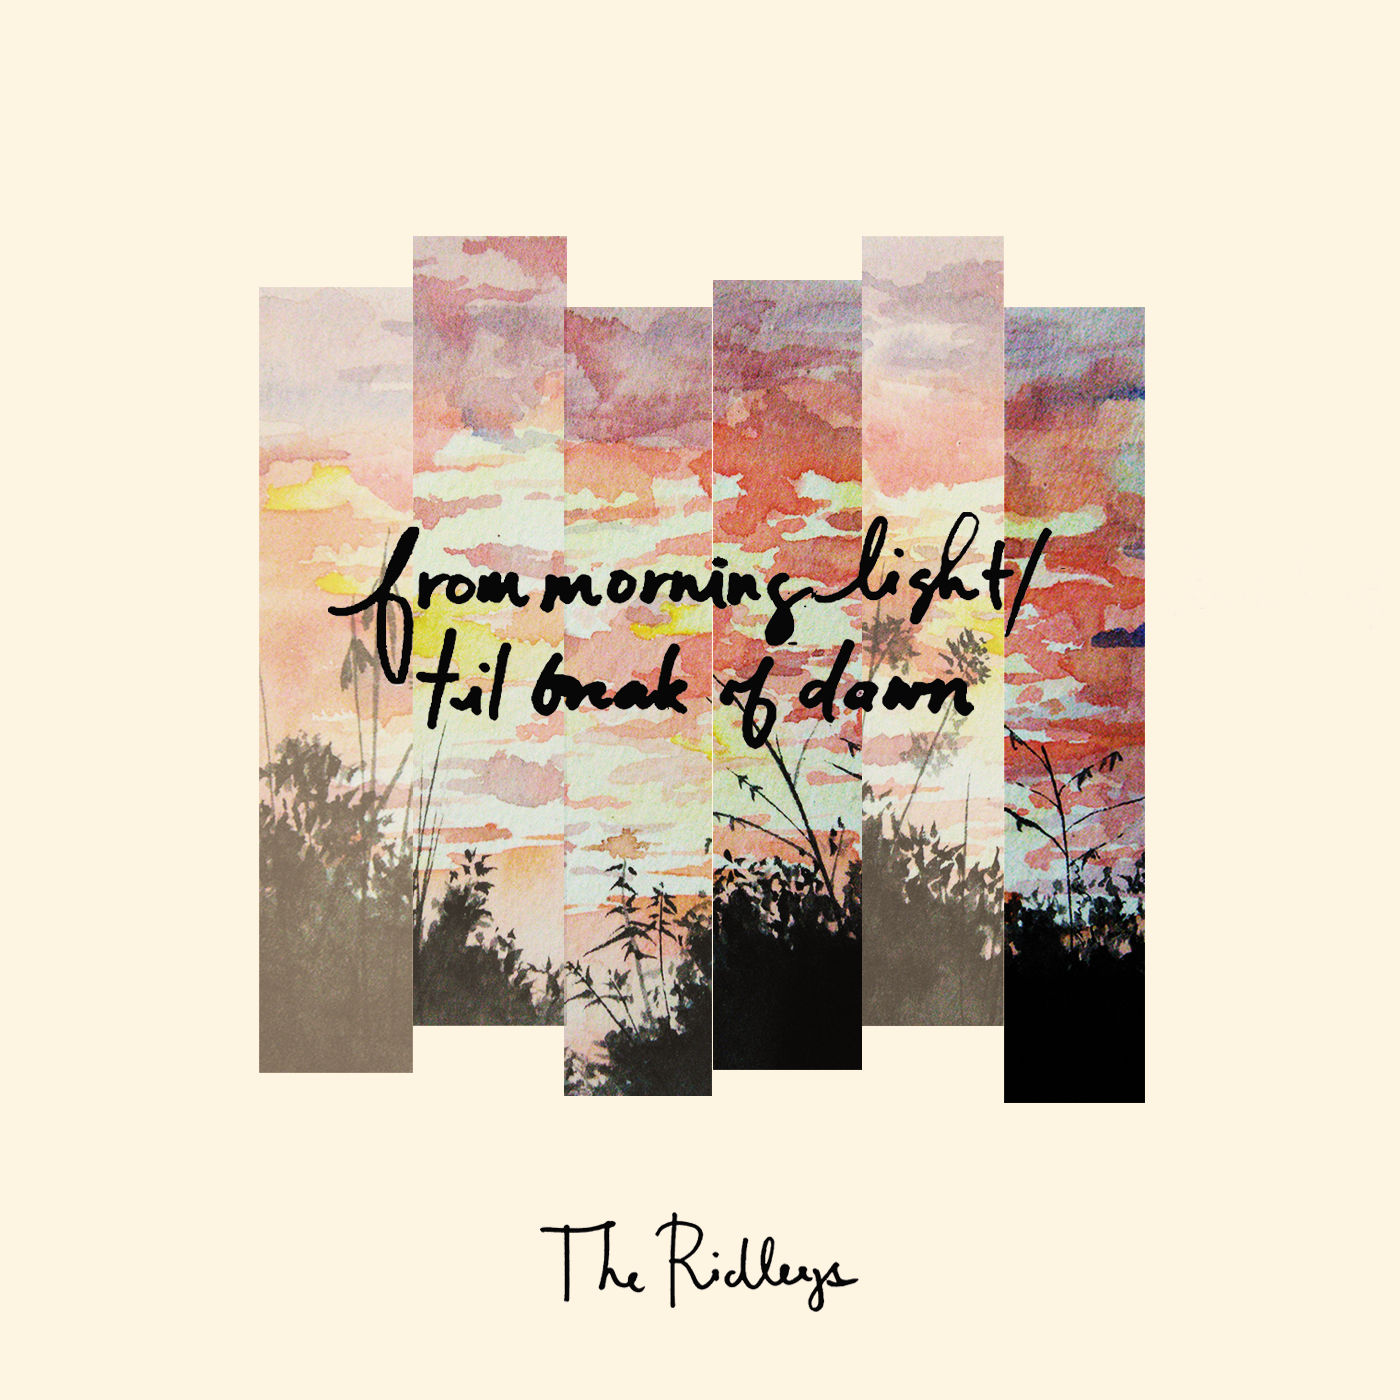 from morning light/
til break of dawn
The Ridleys